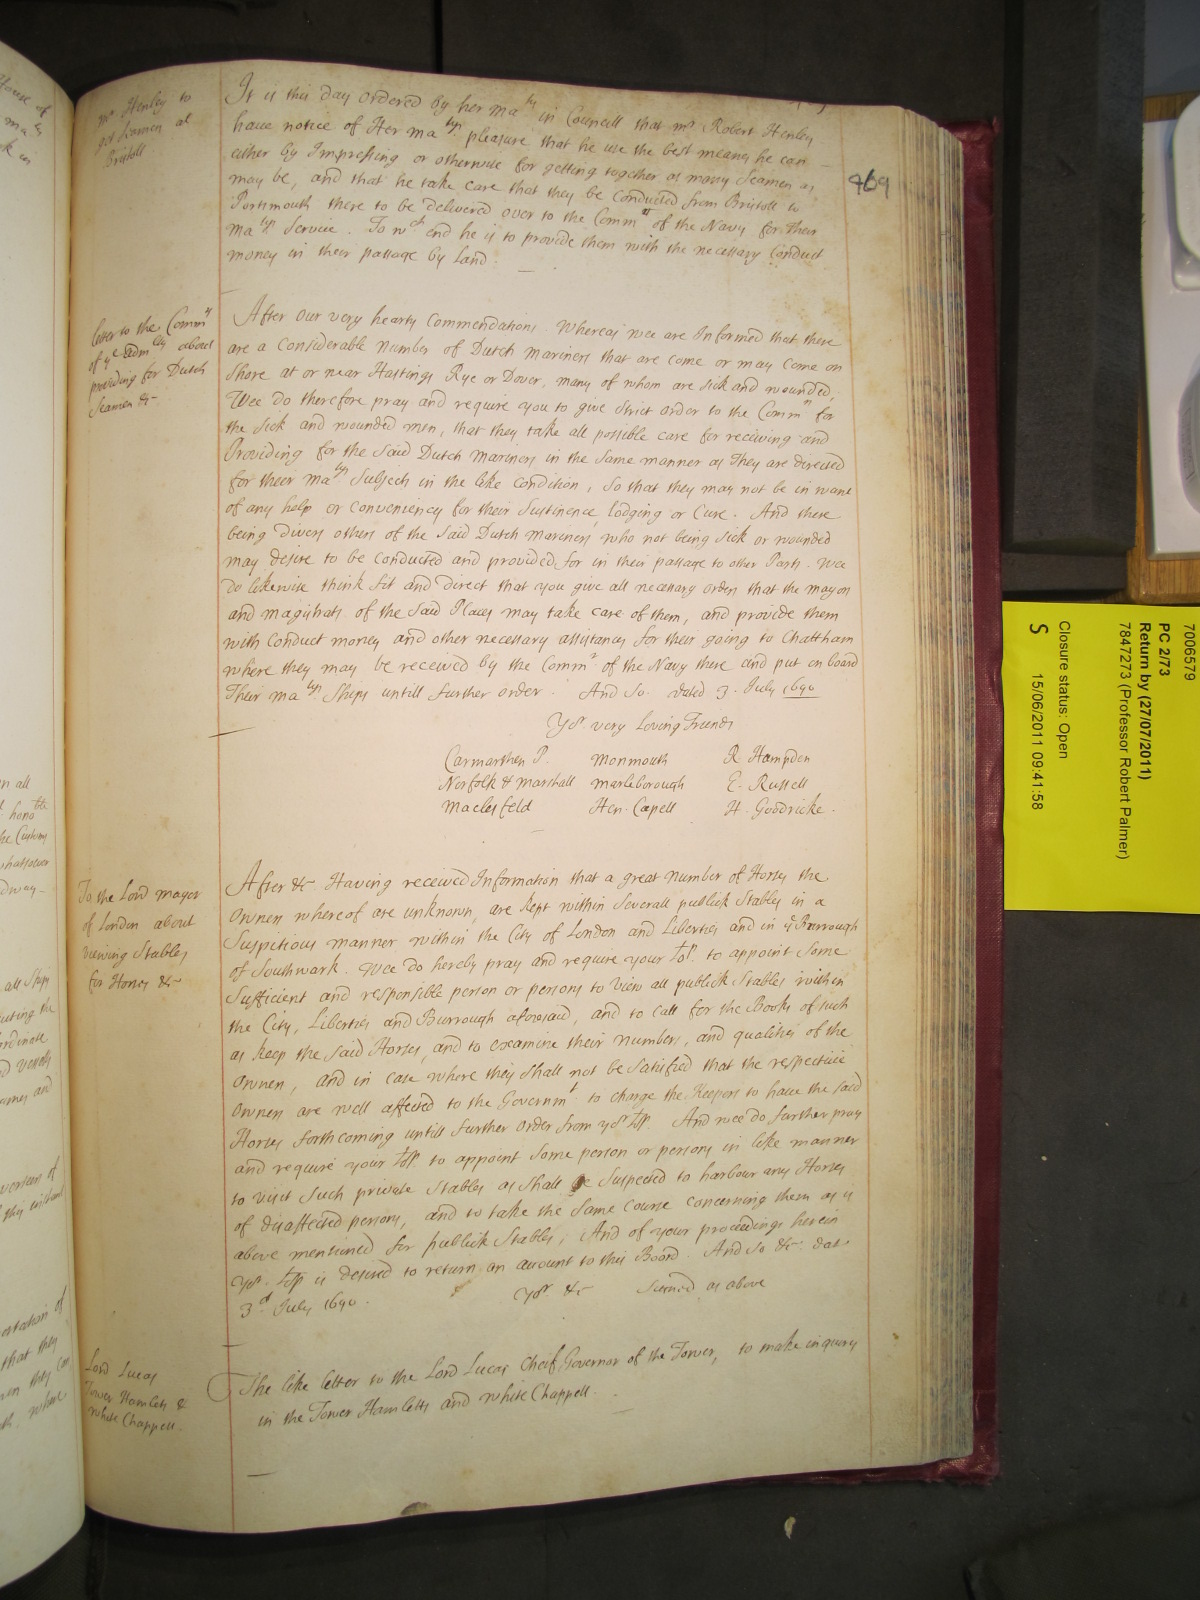 mr Henley to
get Seamen at
Bristoll
It is this day Ordered by her maty in Councill that mr Robert Henley
have notice of Her matys pleasure that he use the best means he can
either by Impressing or otherwise for getting together as many Seamen as
may be, and that he take care that they be Conducted from Bristoll to
Portsmouth there to be delivered over to the Commrs of the Navy for their
matys Service. To wch end he is to provide them with the necessary Conduct
money in their passage by Land.
469
letter to the Commrs
of ye Admlty about
providing for Dutch
Seamen &c
After Our very hearty Commendations. Whereas wee are Informed that there
are a Considerable Number of Dutch mariners that are come or may come on
Shore at or near Hastings Rye or Dover, many of whom are sick and wounded,
Wee do therefore pray and require you to give Strict order to the Commrs for
the Sick and wounded men, that they take all possible care for receiving and
Providing for the said Dutch Mariners in the same manner as They are directed
for their matys Subjects in the like Condition, So that they may not be in want
of any help or Conveniency for their Sustinence, lodging or Cure. And there
being divers others of the Said Dutch mariners who not being Sick or wounded
may desire to be conducted and provided for in their passage to other Parts. Wee
do likewise think fit and direct that you give all necessary orders that the mayors
and magistrats of the Said Places may take care of them, and provide them
with Conduct money and other necessary assistances for their going to Chattham
where they may be received by the Commrs of the Navy there and put on board
Their matys Ships untill further order. And So. dated 3. July 1690
Yor very Loving Friends
Carmarthen P. Monmouth R Hampden
Norfolk & Marshall Marleborough E. Russell
Maclesfeld Hen. Capell H. Goodricke.
To the Lord mayor
of London about
viewing Stables
for Horses &c
After &c Having received Information that a great number of Horses the
Owners whereof are unknown, are kept within Severall publick Stables in a
Suspitious manner within the City of London and Liberties and in ye Burrough
of Southwark. Wee do hereby pray and require your Lop. to appoint Some
Sufficient and responsible person or persons to View all publick Stables within
the City, Liberties and Burrough aforesaid, and to call for the Books of such
as keep the said Horses, and to examine their numbers, and qualities of the
Owners, and in case where they Shall not be Satisfied that the respective
Owners are well affected to the Governmt to charge the Keepers to have the said
Horses forthcoming untill further Order from yor Lop. And wee do further pray
and require your Lop. to appoint some person or persons in like manner
to visit Such private Stables as Shall be Suspected to harbour any Horses
of disaffected persons, and to take the Same Course concerning them as is
above mentioned for publick Stables; And of your proceedings herein
Yor. Lop is desired to return an account to this Board. And So &c. dat.
3d July 1690. Yor &c Signed as above
Lord Lucas
Tower Hamletts &
White Chappell.
The like letter to the Lord Lucas Cheif Governor of the Tower, to make inquiry
in the Tower Hamletts and white Chappell.
7006579
PC 2/73
Return by (27/07/2011)
7847273 (Professor Robert Palmer)
Closure status: Open
S 15/06/2011 09:41:58